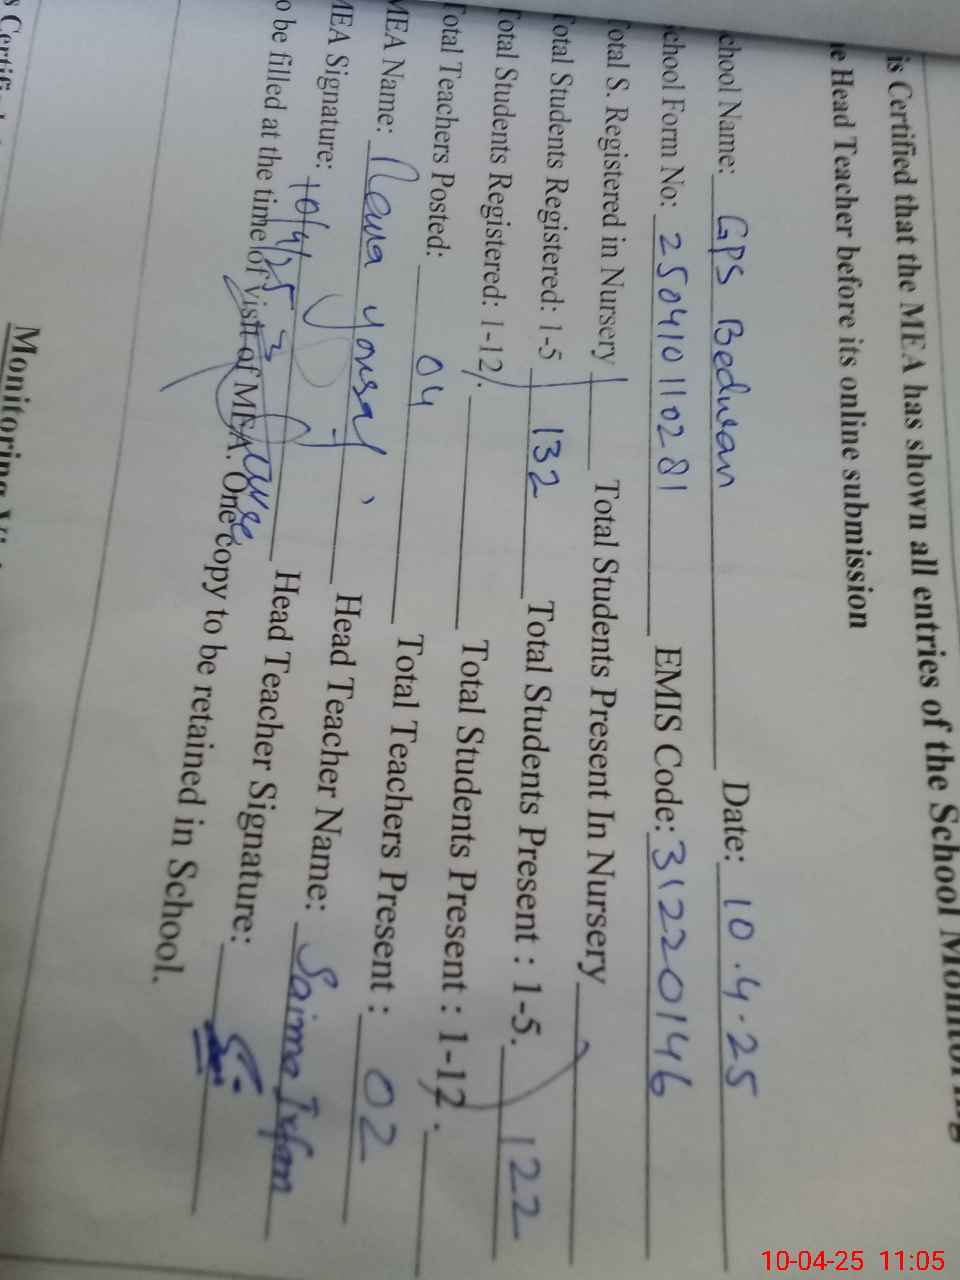 is Certified that the MEA has shown all entries of the School Monitoring
e Head Teacher before its online submission
chool Name: GPS Bedwan Date: 10.4.25
chool Form No: 250410110281 EMIS Code: 31220146
otal S. Registered in Nursery Total Students Present In Nursery
otal Students Registered: 1-5 132 Total Students Present : 1-5. 122
otal Students Registered: 1-12. Total Students Present : 1-12.
otal Teachers Posted: 04 Total Teachers Present : 02
MEA Name: Head Teacher Name: Saima Irfan
MEA Signature: 10/4/25 Head Teacher Signature:
o be filled at the time of visit of MEA. One copy to be retained in School.
10-04-25 11:05